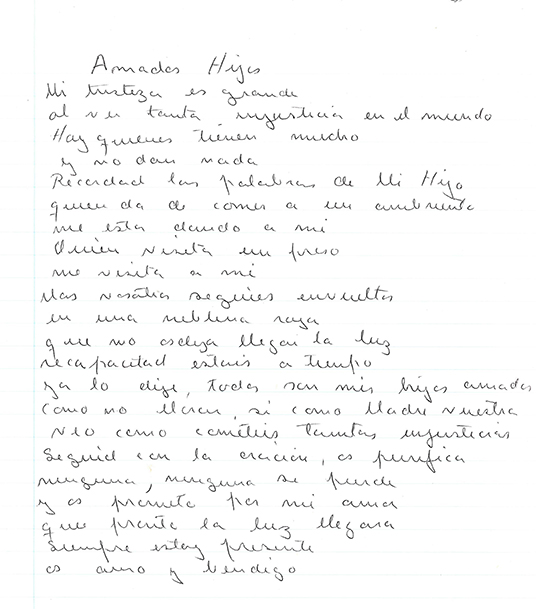 Amados Hijos
Mi tristeza es grande
al ver tanta injusticia en el mundo
Hay quienes tienen mucho
y no dan nada
Recordad las palabras de Mi Hijo
quien da de comer a un ambriento
me esta dando a mi
Quien visita un preso
me visita a mi
Mas vosotros seguies envueltos
en una neblina roja
que no os deja llegar la luz
recapacitad estais a tiempo
ya lo dije, todos son mis hijos amados
como no llorar, si como Madre vuestra
veo como cometeis tantas injusticias
Seguid con la oración, os purifica
ninguna, ninguna se pierde
y os prometo por mi amor
que pronto la luz llegara
Siempre estoy presente
os amo y bendigo